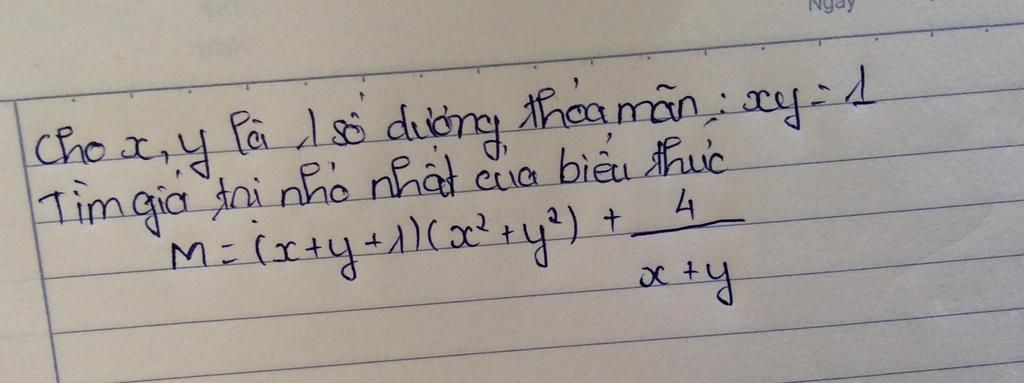 Ngày
Cho x, y là 1 số dương thỏa mãn: xy = 1
Tìm giá trị nhỏ nhất của biểu thức
M = (x+y+1)(x² + y²) + 4/(x+y)